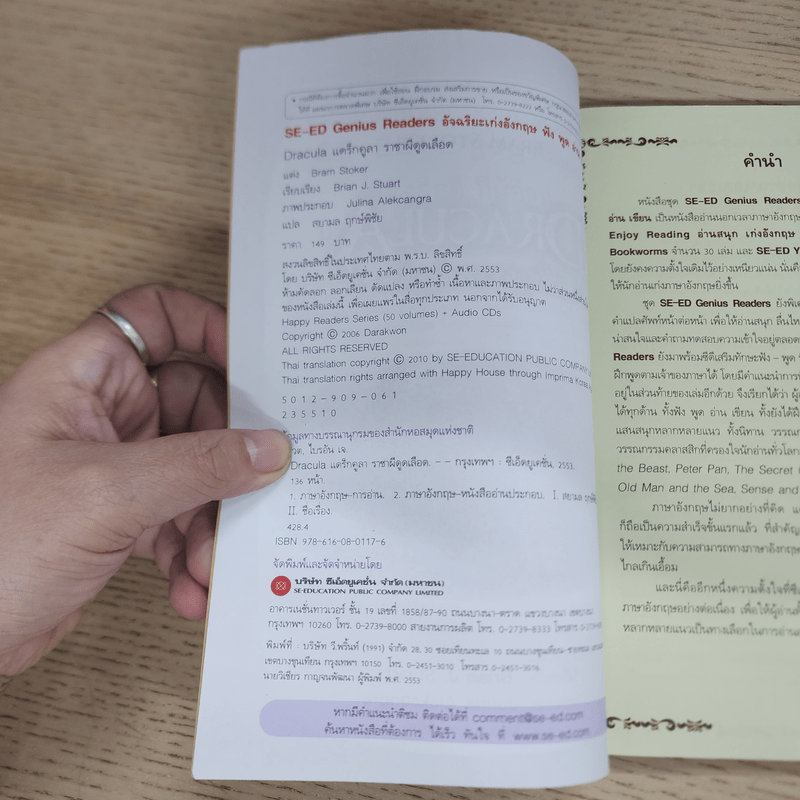 * กรณีที่ต้องการซื้อจำนวนมาก เพื่อใช้สอน ฝึกอบรม ส่งเสริมการขาย หรือเป็นของขวัญพิเศษ
โทร. 0-2739-8222 หรือ
SE-ED Genius Readers อัจฉริยะเก่งอังกฤษ ฟัง พูด
Dracula แดร็กคูลา ราชาผีดูดเลือด
แต่ง Bram Stoker
เรียบเรียง Brian J. Stuart
ภาพประกอบ Julina Alekcangra
แปล สยามล ฤกษ์พิชัย
ราคา 149 บาท
สงวนลิขสิทธิ์ในประเทศไทยตาม พ.ร.บ. ลิขสิทธิ์
โดย บริษัท ซีเอ็ดยูเคชั่น จำกัด (มหาชน) © พ.ศ. 2553
ห้ามคัดลอก ลอกเลียน ดัดแปลง หรือทำซ้ำ เนื้อหาและภาพประกอบ ไม่ว่าส่วนหนึ่งส่วนใด
ของหนังสือเล่มนี้ เพื่อเผยแพร่ในสื่อทุกประเภท นอกจากได้รับอนุญาต
Happy Readers Series (50 volumes) + Audio CDs
Copyright © 2006 Darakwon
ALL RIGHTS RESERVED
Thai translation copyright © 2010 by SE-EDUCATION PUBLIC COMPANY
Thai translation rights arranged with Happy House through Imprima Korea
5012-909-061
235510
ข้อมูลทางบรรณานุกรมของสำนักหอสมุดแห่งชาติ
ไบรอัน เจ.
Dracula แดร็กคูลา ราชาผีดูดเลือด. -- กรุงเทพฯ : ซีเอ็ดยูเคชั่น, 2553.
136 หน้า.
1. ภาษาอังกฤษ--การอ่าน. 2. ภาษาอังกฤษ--หนังสืออ่านประกอบ. I. สยามล
II. ชื่อเรื่อง.
428.4
ISBN 978-616-08-0117-6
จัดพิมพ์และจัดจำหน่ายโดย
บริษัท ซีเอ็ดยูเคชั่น จำกัด (มหาชน)
SE-EDUCATION PUBLIC COMPANY LIMITED
อาคารเนชั่นทาวเวอร์ ชั้น 19 เลขที่ 1858/87-90 ถนนบางนา-ตราด แขวงบางนา เขตบางนา
กรุงเทพฯ 10260 โทร. 0-2739-8000 สายงานการผลิต โทร. 0-2739-8333 โทรสาร
พิมพ์ที่ : บริษัท วี.พริ้นท์ (1991) จำกัด 28, 30 ซอยเทียนทะเล 10 ถนนบางขุนเทียน-ชายทะเล
เขตบางขุนเทียน กรุงเทพฯ 10150 โทร. 0-2451-3010 โทรสาร 0-2451-3016
นายวิเชียร กาญจนพัฒนา ผู้พิมพ์ พ.ศ. 2553
หากมีคำแนะนำติชม ติดต่อได้ที่ comment@se-ed.com
ค้นหาหนังสือที่ต้องการ ได้เร็ว ทันใจ ที่ www.se-ed.com
คำนำ
หนังสือชุด SE-ED Genius Readers
อ่าน เขียน เป็นหนังสืออ่านนอกเวลาภาษาอังกฤษ
Enjoy Reading อ่านสนุก เก่งอังกฤษ
Bookworms จำนวน 30 เล่ม และ SE-ED
โดยยังคงความตั้งใจเดิมไว้อย่างเหนียวแน่น นั่นคือ
ให้นักอ่านเก่งภาษาอังกฤษยิ่งขึ้น
ชุด SE-ED Genius Readers
คำแปลศัพท์หน้าต่อหน้า เพื่อให้อ่านสนุก
น่าสนใจและคำถามทดสอบความเข้าใจอยู่ตลอด
Readers ยังมาพร้อมซีดีเสริมทักษะฟัง – พูด
ฝึกพูดตามเจ้าของภาษาได้ โดยมีคำแนะนำการ
อยู่ในส่วนท้ายของเล่มอีกด้วย จึงเรียกได้ว่า
ได้ทุกด้าน ทั้งฟัง พูด อ่าน เขียน ทั้งยังได้
แสนสนุกหลากหลายแนว ทั้งนิทาน
วรรณกรรมคลาสสิกที่ครองใจนักอ่านทั่วโลก
the Beast, Peter Pan, The Secret
Old Man and the Sea, Sense and
ภาษาอังกฤษไม่ยากอย่างที่คิด
ก็ถือเป็นความสำเร็จขั้นแรกแล้ว ที่สำคัญ
ให้เหมาะกับความสามารถทางภาษาอังกฤษ
ไกลเกินเอื้อม
และนี่คืออีกหนึ่งความตั้งใจที่
ภาษาอังกฤษอย่างต่อเนื่อง เพื่อให้ผู้อ่าน
หลากหลายแนวเป็นทางเลือกในการอ่าน